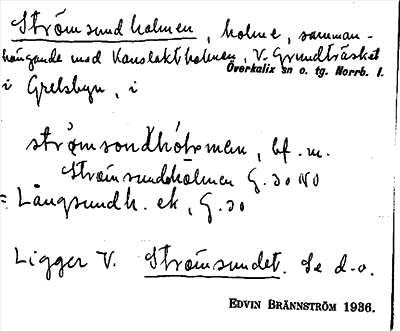 Strömsundholmen, holme, samman-
hängande med Kanslaktholmen, V. Grundträsket
Överkalix sn o. tg. Norrb. l.
i Grelsbyn, i
strömsondhólmen, bf. m.
Strömsundsholmen G. 30 NO
= Långsundh. ek, G. 30
Ligger V. Strömsundet. Se d.o.
EDVIN BRÄNNSTRÖM 1936.